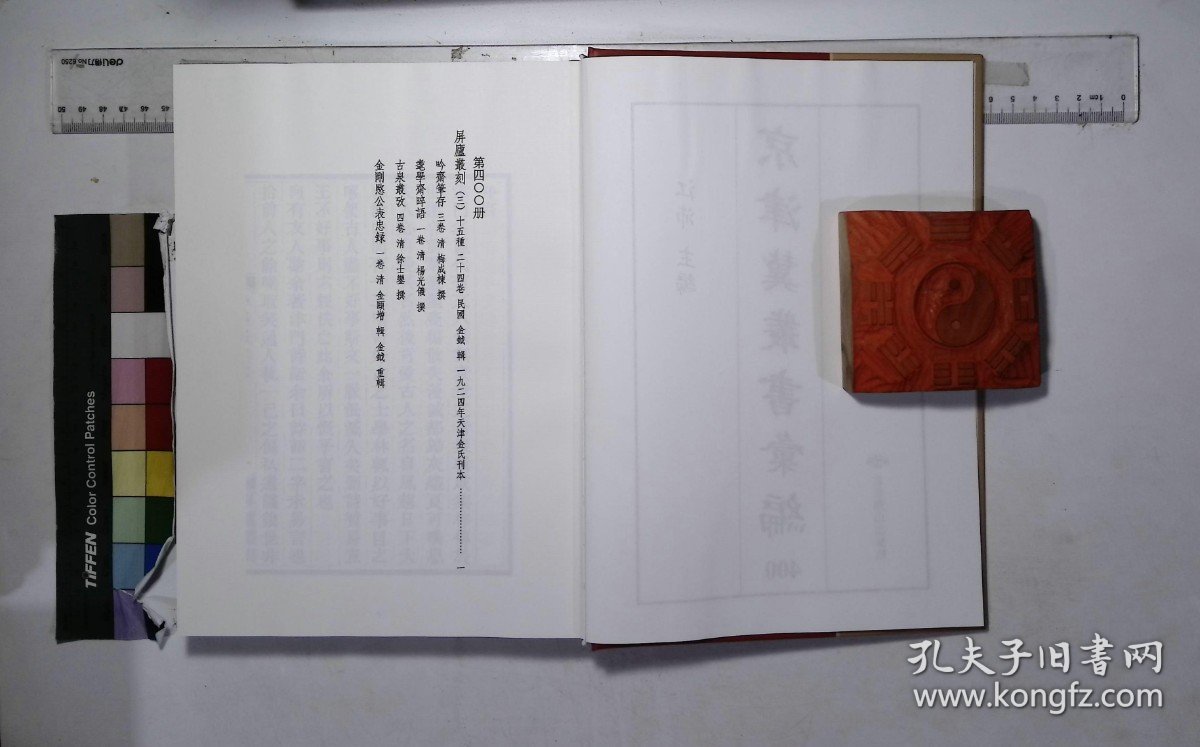 第四〇〇册
屏廬叢刻（三）十五種 二十四卷 民國 金鉞 輯 一九二四年天津金氏刊本 …………………… 一
吟齋筆存 三卷 清 梅成棟 撰
耄學齋晬語 一卷 清 楊光儀 撰
古泉叢攷 四卷 清 徐士鑾 撰
金剛愍公表忠録 一卷 清 金頤增 輯 金鉞 重輯
京津冀叢書彙編
江沛 主編
400
deli得力 No.6250
50 49 48 47 46 45
6 5 4 3 2 1cm 0
TIFFEN Color Control Patches
孔夫子旧書网
www.kongfz.com